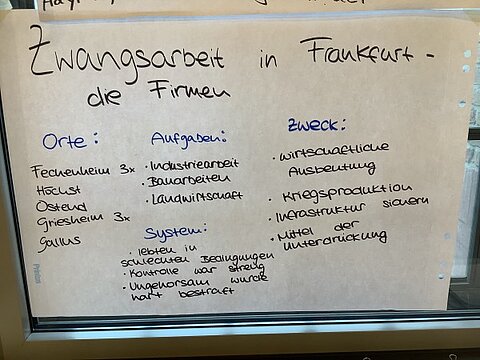 Zwangsarbeit in Frankfurt -
die Firmen
Orte:
Fechenheim 3x
Höchst
Ostend
Griesheim 3x
Gallus
Aufgaben:
· Industriearbeit
· Bauarbeiten
· Landwirtschaft
System:
· lebten in
schlechten Bedingungen
· Kontrolle war streng
· Ungehorsam wurde
hart bestraft
Zweck:
· wirtschaftliche
Ausbeutung
· Kriegsproduktion
· Infrastruktur sichern
· Mittel der
Unterdrückung